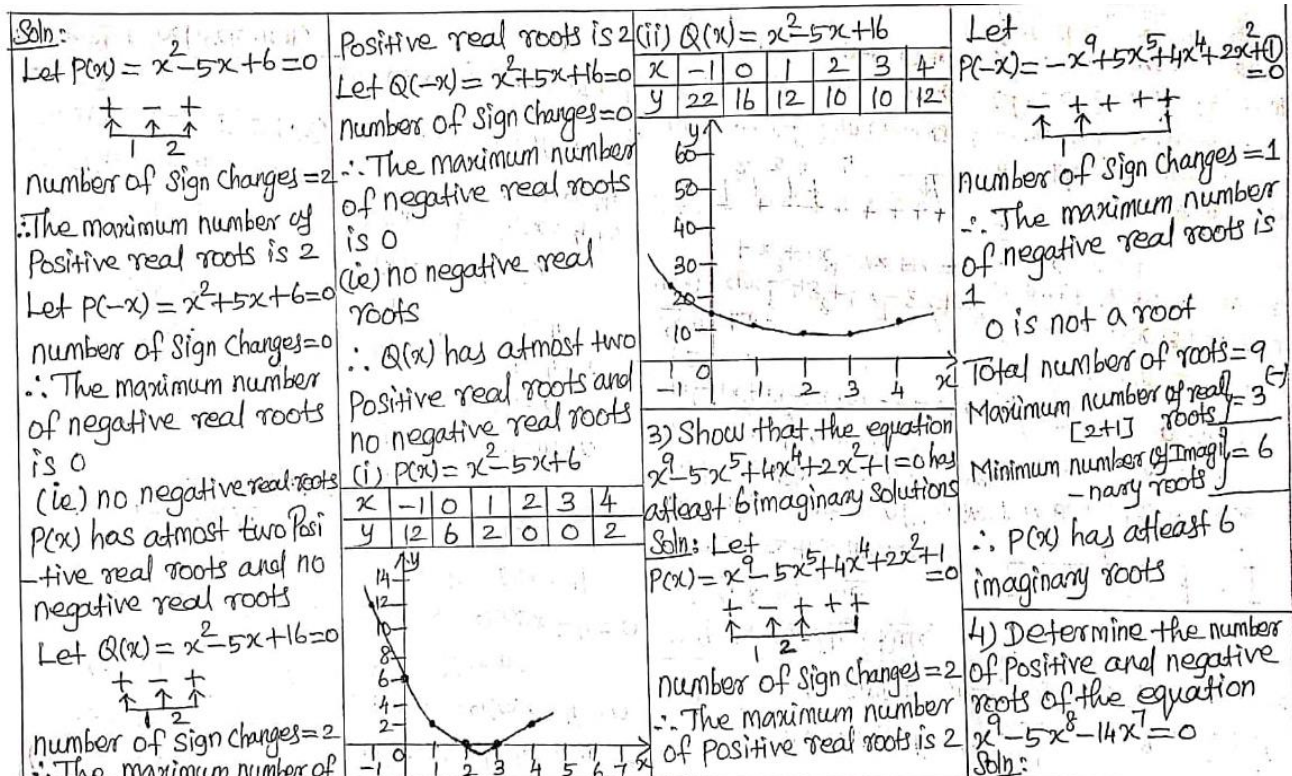 Soln:
Let P(x) = x²-5x+6=0
+ - +
1 2
number of sign changes=2
∴The maximum number of
Positive real roots is 2
Let P(-x) = x²+5x+6=0
number of sign changes=0
∴ The maximum number
of negative real roots
is 0
(ie) no negative real roots
P(x) has atmost two Posi
-tive real roots and no
negative real roots
Let Q(x) = x²-5x+16=0
+ - +
1 2
number of sign changes=2
∴ The maximum number of
Positive real roots is 2
Let Q(-x) = x²+5x+16=0
number of sign changes=0
∴ The maximum number
of negative real roots
is 0
(ie) no negative real
roots
∴ Q(x) has atmost two
Positive real roots and
no negative real roots
(i) P(x) = x²-5x+6
x -1 0 1 2 3 4
y 12 6 2 0 0 2
y
14
12
10
8
6
4
2
-1 0 1 2 3 4 5 6 7 x
(ii) Q(x) = x²-5x+16
x -1 0 1 2 3 4
y 22 16 12 10 10 12
y
60
50
40
30
20
10
-1 0 1 2 3 4 x
3) Show that the equation
x⁹-5x⁵+4x⁴+2x²+1=0 has
atleast 6 imaginary solutions
Soln: Let
P(x) = x⁹-5x⁵+4x⁴+2x²+1
=0
+ - + + +
1 2
number of sign changes=2
∴ The maximum number
of positive real roots is 2
Let
P(-x) = -x⁹+5x⁵+4x⁴+2x²+1
=0
- + + + +
1
number of sign changes=1
∴ The maximum number
of negative real roots is
1
0 is not a root
Total number of roots=9
Maximum number of real
[2+1] roots } = 3 (-)
Minimum number of Imagi
-nary roots } = 6
∴ P(x) has atleast 6
imaginary roots
4) Determine the number
of positive and negative
roots of the equation
x⁹-5x⁸-14x⁷=0
Soln: